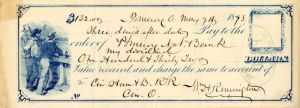 $132.00 Pomeroy O. May 7th 1893
Three days after date Pay to the
order of Pomeroy Nat. Bank
One Hundred & Thirty Two
DOLLARS.
Value received and charge the same to account of
To Cin. Ham & D. RR
Cin. O.
No